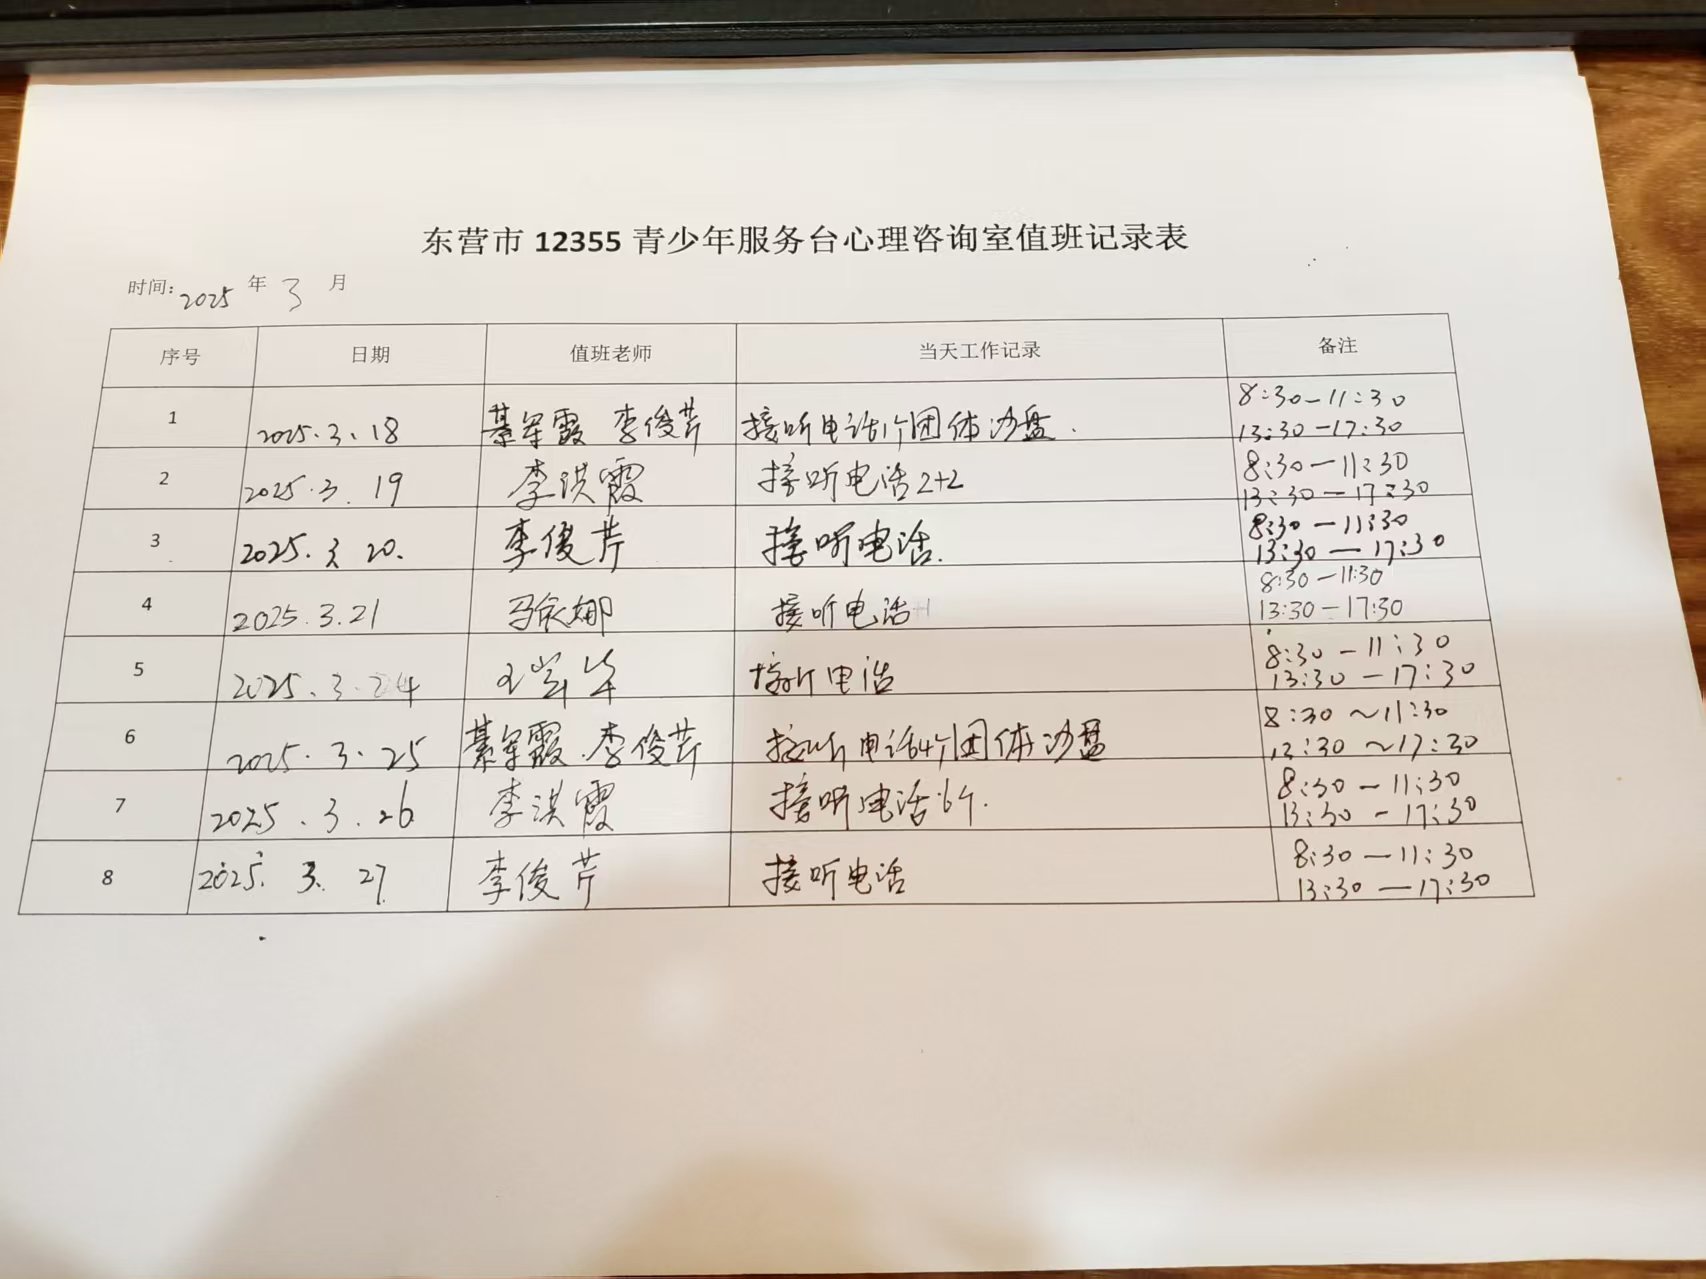 东营市 12355 青少年服务台心理咨询室值班记录表
时间: 2025 年 3 月
序号 日期 值班老师 当天工作记录 备注
1 2025.3.18 綦军霞 李俊芹 接听电话1个团体沙盘. 8:30-11:30
13:30-17:30
2 2025.3.19 李洪霞 接听电话2+2 8:30-11:30
13:30-17:30
3 2025.3.20. 李俊芹 接听电话. 8:30-11:30
13:30-17:30
4 2025.3.21 马依娜 接听电话+1 8:30-11:30
13:30-17:30
5 2025.3.24 接听电话 8:30-11:30
13:30-17:30
6 2025.3.25 綦军霞.李俊芹 接听电话4个团体沙盘 8:30~11:30
13:30~17:30
7 2025.3.26 李洪霞 接听电话6个. 8:30-11:30
13:30-17:30
8 2025.3.27 李俊芹 接听电话 8:30-11:30
13:30-17:30